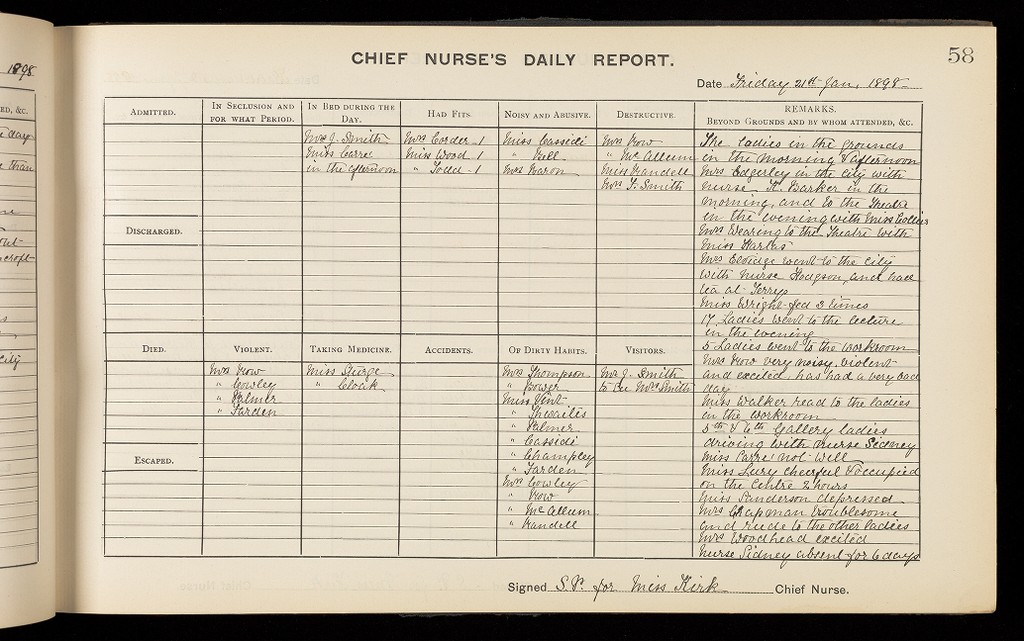 58
CHIEF NURSE'S DAILY REPORT.
1898
Date Friday 21st Jan, 1898
ADMITTED.
IN SECLUSION AND
FOR WHAT PERIOD.
IN BED DURING THE
DAY.
Mrs J. Smith
Miss Carre
in the afternoon
HAD FITS.
Mrs Corder 1
Miss Wood 1
" Todd 1
NOISY AND ABUSIVE.
Miss Cassidi
" Bell
Mrs Baron
DESTRUCTIVE.
Mrs Row
" McAllum
Miss Randell
Mrs F. Smith
REMARKS.
BEYOND GROUNDS AND BY WHOM ATTENDED, &C.
The ladies in the grounds
in the morning & afternoon
Mrs Edgerley in the city with
nurse H. Barker in the
morning, and to the Theatre
in the evening with Miss Collins
Mrs Wearing to the Theatre with
Miss
Mrs went to the city
with nurse Hodgson, and have
tea at Terrys
Miss Wright fed 3 times
17 Ladies went to the lecture
in the evening
5 Ladies went to the workroom
Mrs Row very noisy, violent
and excited, has had a very bad
day
Miss Walker read to the ladies
in the workroom
5th & 6th Gallery ladies
driving with nurse Sidney
Miss Carre not well
Miss Lury cheerful & occupied
on the Centre 2 hours
Miss Sanderson depressed
Mrs Chapman troublesome
and rude to the other ladies
Mrs Woodhead excited
nurse Sidney absent for 6 days
DISCHARGED.
DIED.
VIOLENT.
Mrs Row
" Cowley
" Palmer
" Farden
TAKING MEDICINE.
Miss Sturge
" Cloak
ACCIDENTS.
OF DIRTY HABITS.
Mrs Thompson
" Bower
Miss Vint
" Thwailis
" Palmer
" Cassidi
" Champley
" Farden
Mrs Cowley
" Row
" McAllum
" Randell
VISITORS.
Mr J. Smith
to see Mrs Smith
ESCAPED.
Signed S.P. for Miss Kirk Chief Nurse.